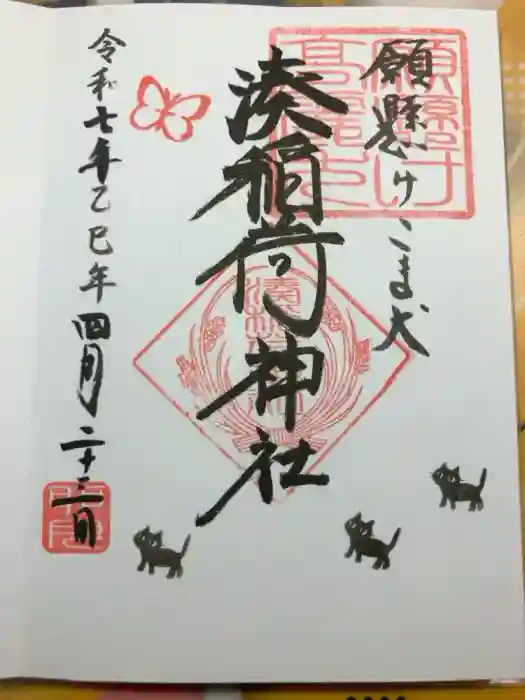 願懸けこま犬
湊稲荷神社
令和七年乙巳年四月二十三日